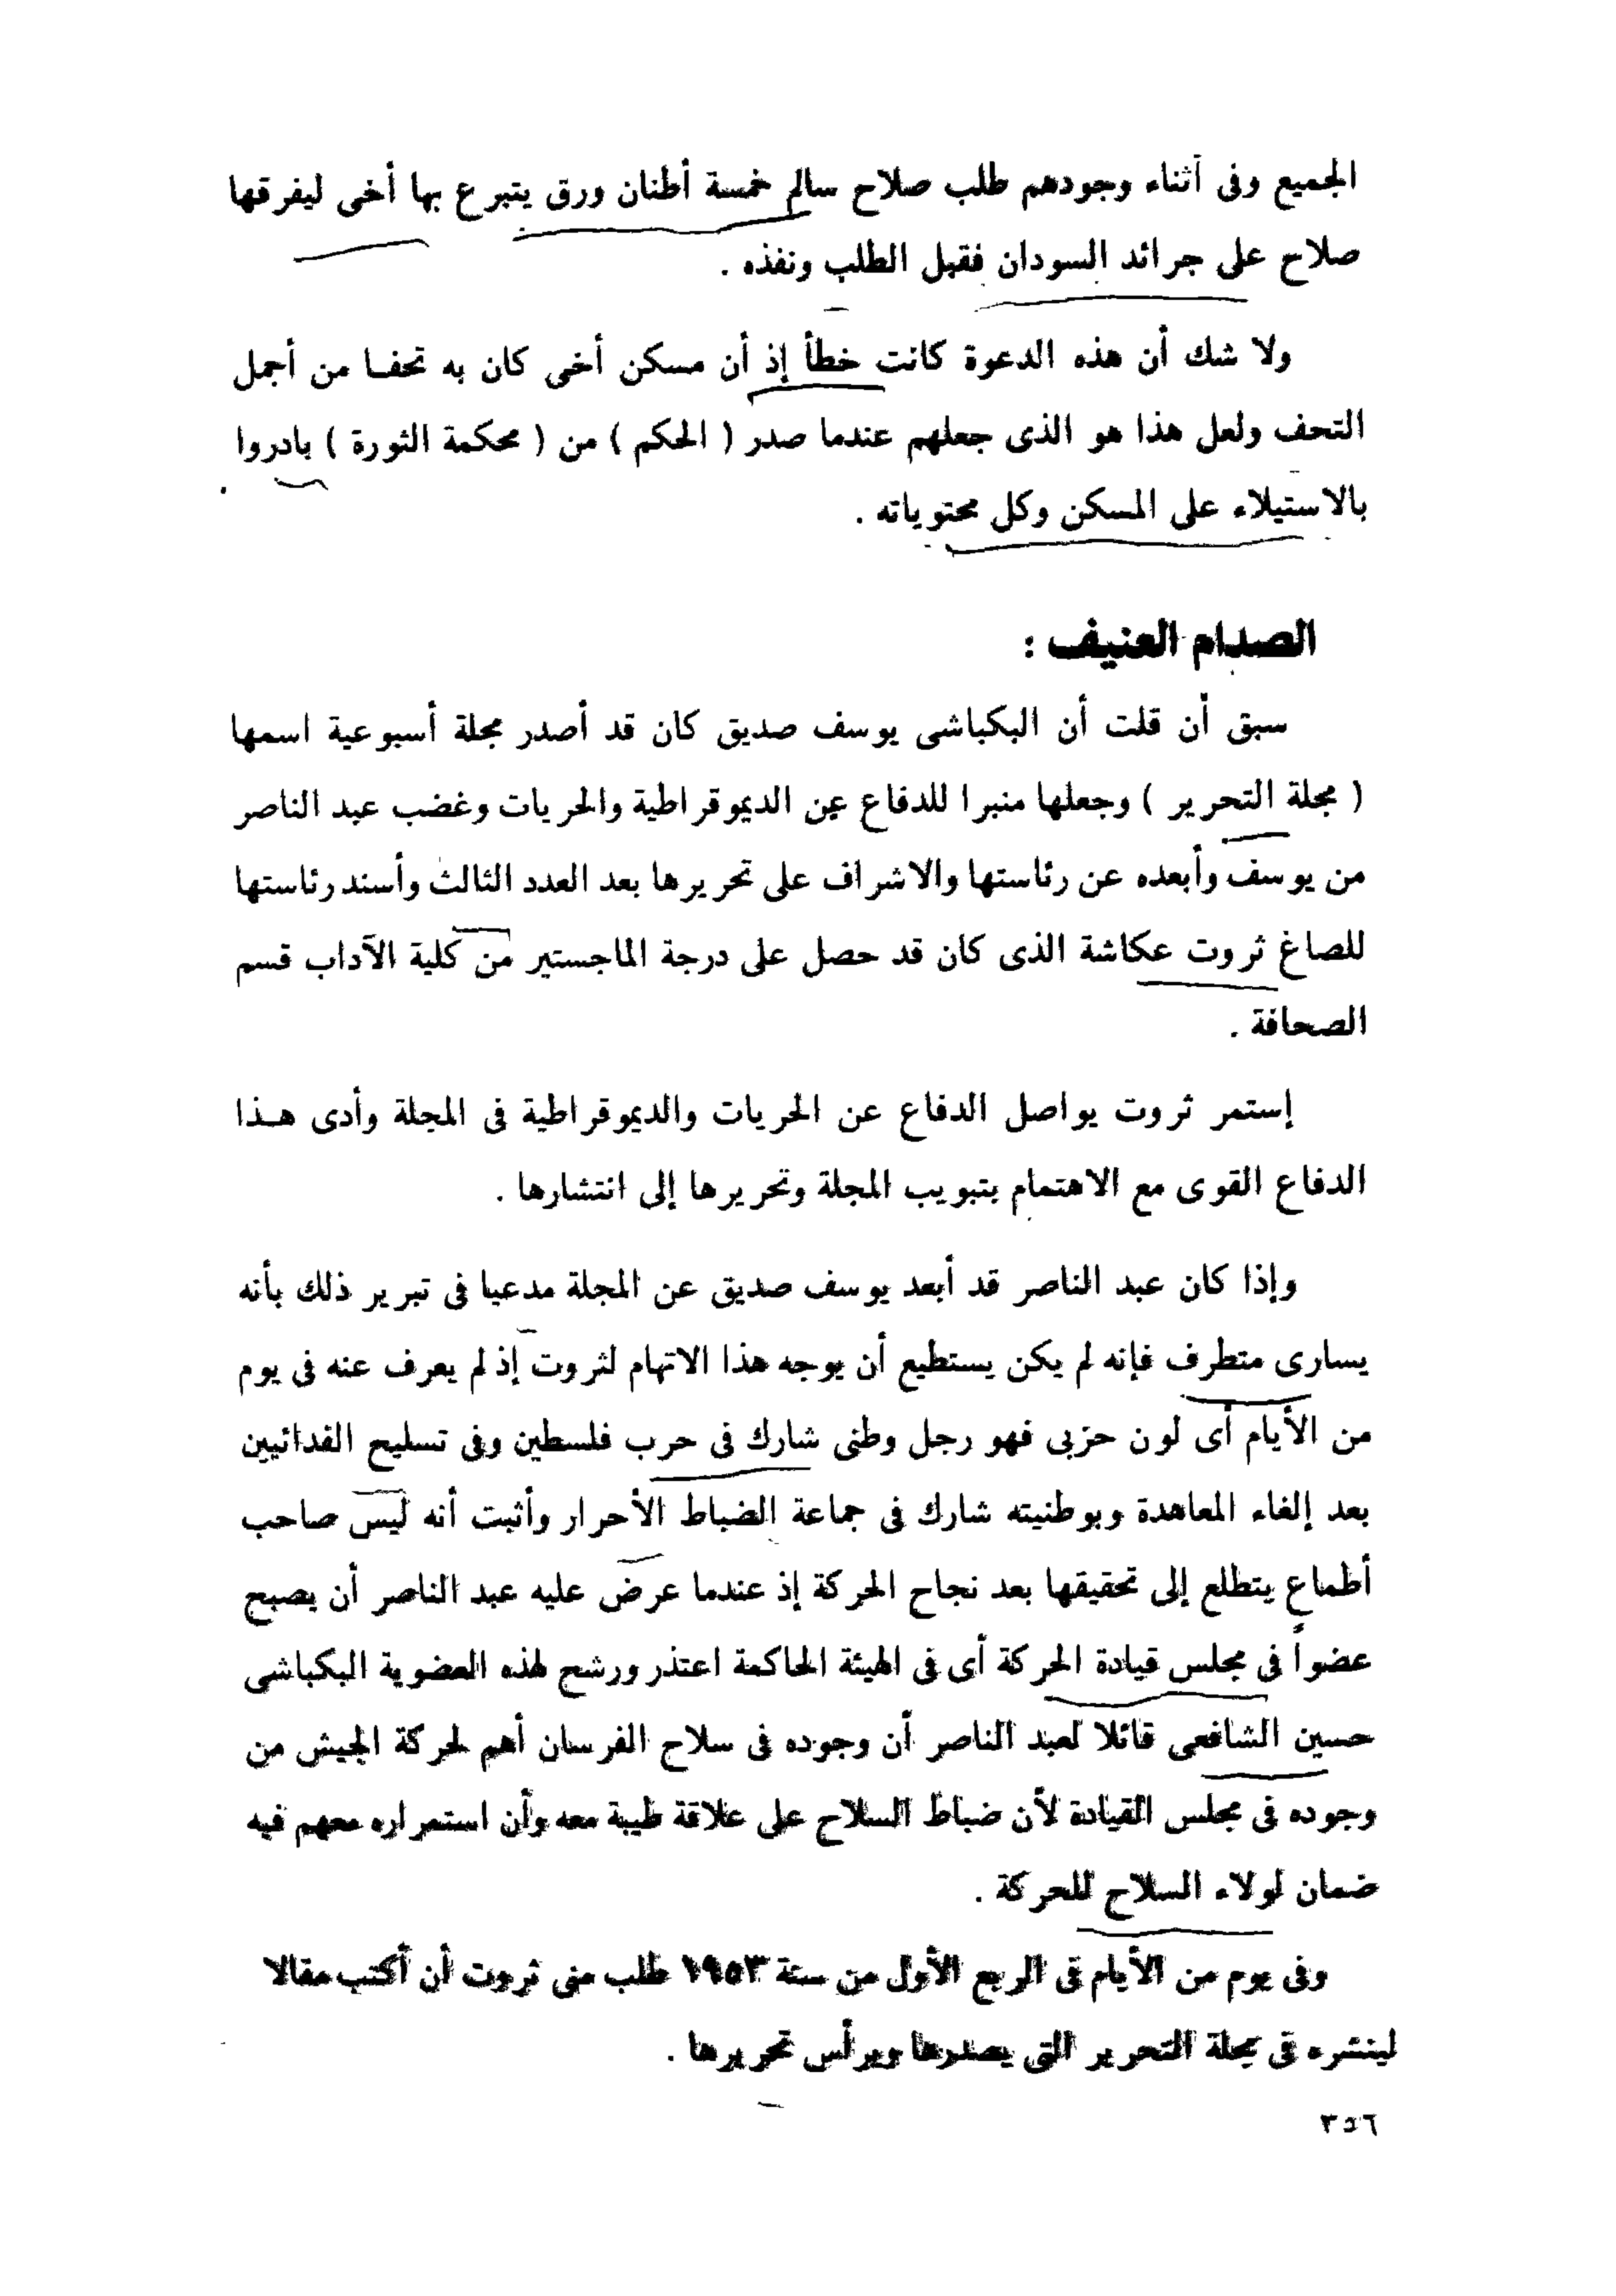 الجميع وفى أثناء وجودهم طلب صلاح سالم خمسة أطنان ورق يتبرع بها أخى ليفرقها
صلاح على جرائد السودان فقبل الطلب ونفذه .
ولا شك أن هذه الدعوة كانت خطأ إذ أن مسكن أخى كان به تحفـا من أجمل
التحف ولعل هذا هو الذى جعلهم عندما صدر ( الحكم ) من ( محكمة الثورة ) بادروا
بالاستيلاء على المسكن وكل محتوياته .
الصدام العنيف :
سبق أن قلت أن البكباشى يوسف صديق كان قد أصدر مجلة أسبوعية اسمها
( مجلة التحرير ) وجعلها منبرا للدفاع عن الديموقراطية والحريات وغضب عبد الناصر
من يوسف وأبعده عن رئاستها والاشراف على تحريرها بعد العدد الثالث وأسند رئاستها
للصاغ ثروت عكاشة الذى كان قد حصل على درجة الماجستير من كلية الآداب قسم
الصحافة .
إستمر ثروت يواصل الدفاع عن الحريات والديموقراطية فى المجلة وأدى هـذا
الدفاع القوى مع الاهتمام بتبويب المجلة وتحريرها إلى انتشارها .
وإذا كان عبد الناصر قد أبعد يوسف صديق عن المجلة مدعيا فى تبرير ذلك بأنه
يسارى متطرف فإنه لم يكن يستطيع أن يوجه هذا الاتهام لثروت إذ لم يعرف عنه فى يوم
من الأيام أى لون حزبى فهو رجل وطنى شارك فى حرب فلسطين وفى تسليح الفدائيين
بعد إلغاء المعاهدة وبوطنيته شارك فى جماعة الضباط الأحرار وأثبت أنه ليس صاحب
أطماع يتطلع إلى تحقيقها بعد نجاح الحركة إذ عندما عرض عليه عبد الناصر أن يصبح
عضواً فى مجلس قيادة الحركة أى فى الهيئة الحاكمة اعتذر ورشح لهذه العضوية البكباشى
حسين الشافعى قائلا لعبد الناصر أن وجوده فى سلاح الفرسان أهم لحركة الجيش من
وجوده فى مجلس القيادة لأن ضباط السلاح على علاقة طيبة معه وأن استمراره معهم فيه
ضمان لولاء السلاح للحركة .
وفى يوم من الأيام فى الربع الأول من سنة ١٩٥٣ طلب منى ثروت أن أكتب مقالا
لينشره فى مجلة التحرير التى يصدرها ويرأس تحريرها .
٣٥٦